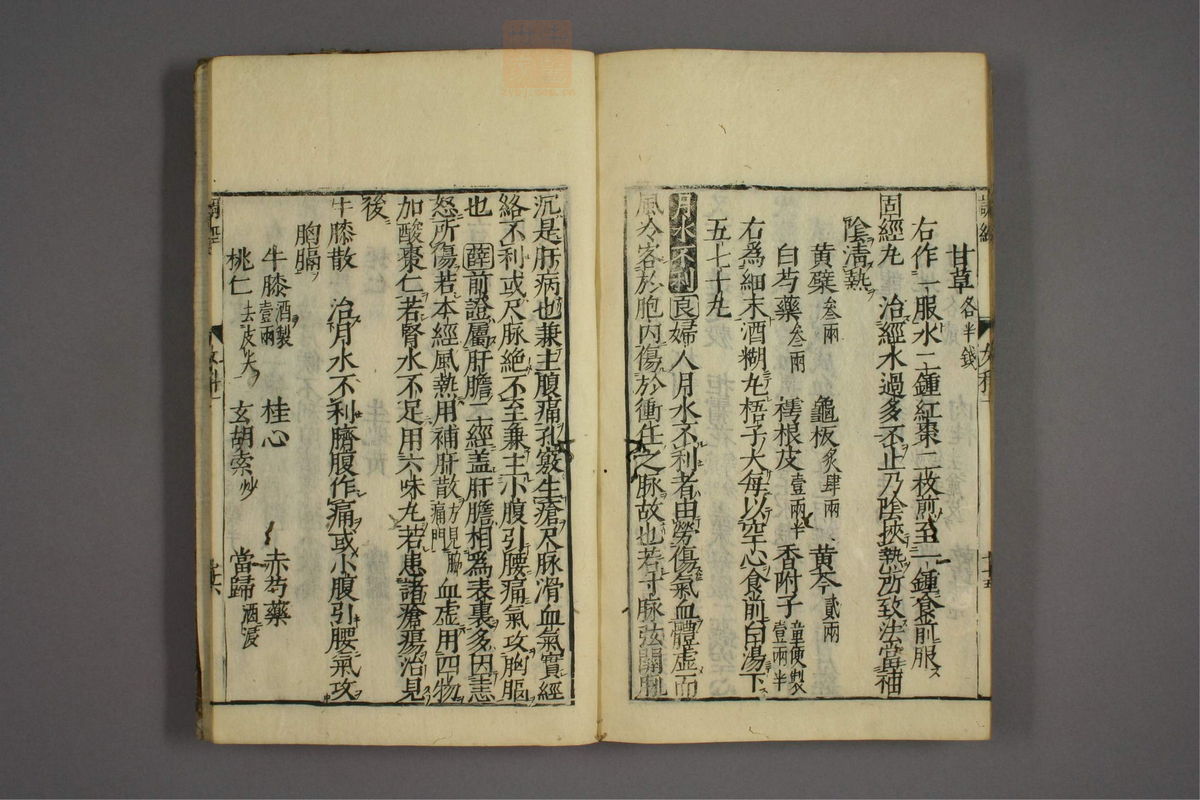 甘草各半錢
右作一服水二鍾紅棗二枚煎至一鍾食前服
固經丸　治經水過多不止乃陰挾熱所致法當補
陰淸熱
黄蘗叁兩　龜板炙肆兩　黄芩貳兩
白芍藥叁兩　樗根皮壹兩半　香附子童便製壹兩半
右爲細末酒糊丸梧子大每以空心食前白湯下
五七十丸
月水不利良婦人月水不利者由勞傷氣血體虚而
風冷客於胞内傷於衝任之脉故也若寸脉弦關脉
沉是肝病也兼主腹痛孔竅生瘡尺脉滑血氣實經
絡不利或尺脉絶不至兼主小腹引腰痛氣攻胸膈
也　薛前證屬肝膽二經盖肝膽相爲表裏多因恚
怒所傷若本經風熱用補肝散方見脇痛門血虚用四物
加酸棗仁若腎水不足用六味丸若患諸瘡瘍治見
後
牛膝散　治月水不利臍腹作痛或小腹引腰氣攻
胸膈
牛膝酒製壹兩　桂心　赤芍藥
桃仁去皮尖　玄胡索炒　當歸酒浸